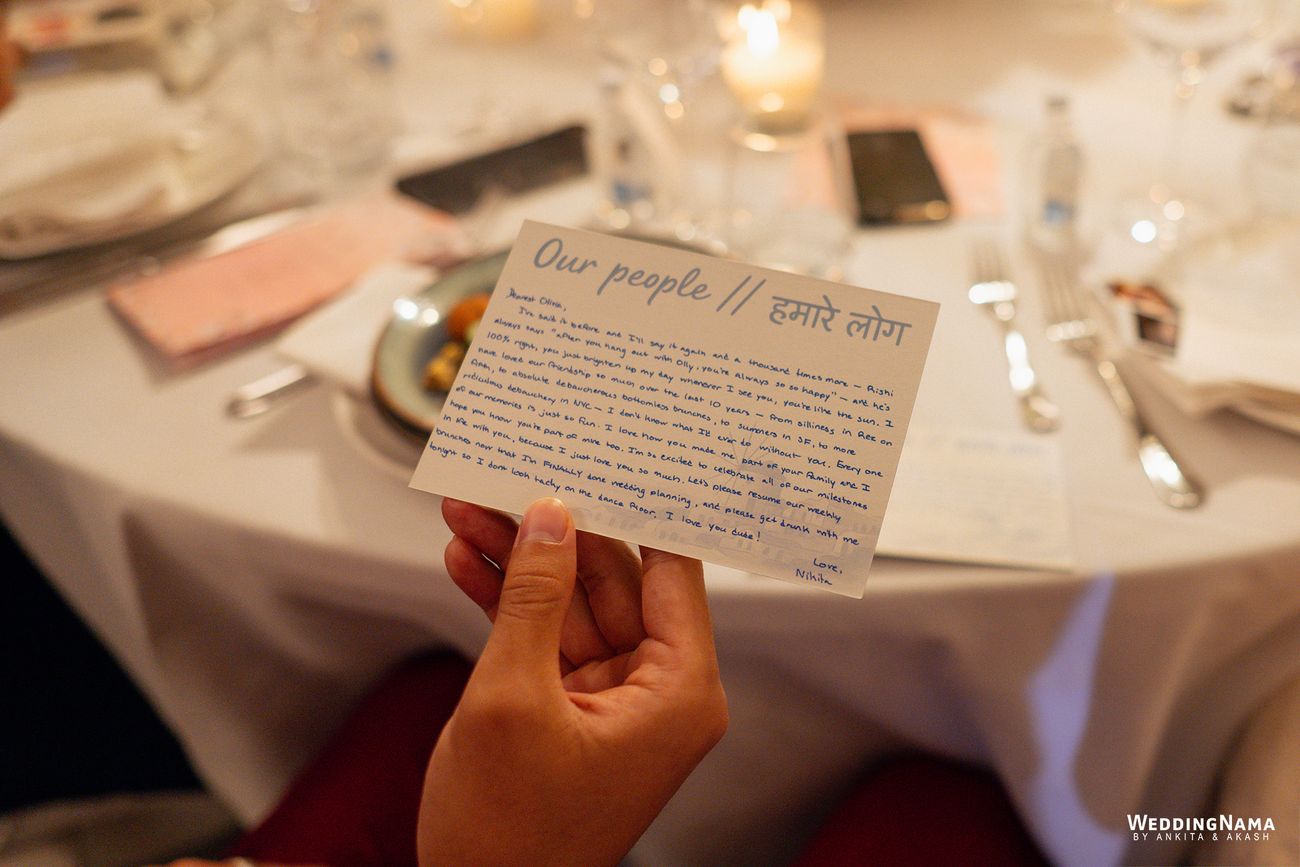 Our people // हमारे लोग
Dearest Olivia,
I've said it before and I'll say it again and a thousand times more – Rishi
always says "after you hang out with Olly, you're always so so happy" – and he's
100% right, you just brighten up my day whenever I see you, you're like the sun. I
have loved our friendship so much over the last 10 years – from silliness in Ree on
Ann, to absolute debaucherous bottomless brunches, to summers in SF, to more
ridiculous debauchery in NYC – I don't know what I'd ever do without you. Every one
of our memories is just so fun. I love how you made me part of your family and I
hope you know you're part of mine too. I'm so excited to celebrate all of our milestones
in life with you, because I just love you so much. Let's please resume our weekly
brunches now that I'm FINALLY done wedding planning, and please get drunk with me
tonight so I dont look tacky on the dance floor. I love you dude!
Love,
Nikita
WEDDINGNAMA
BY ANKITA & AKASH